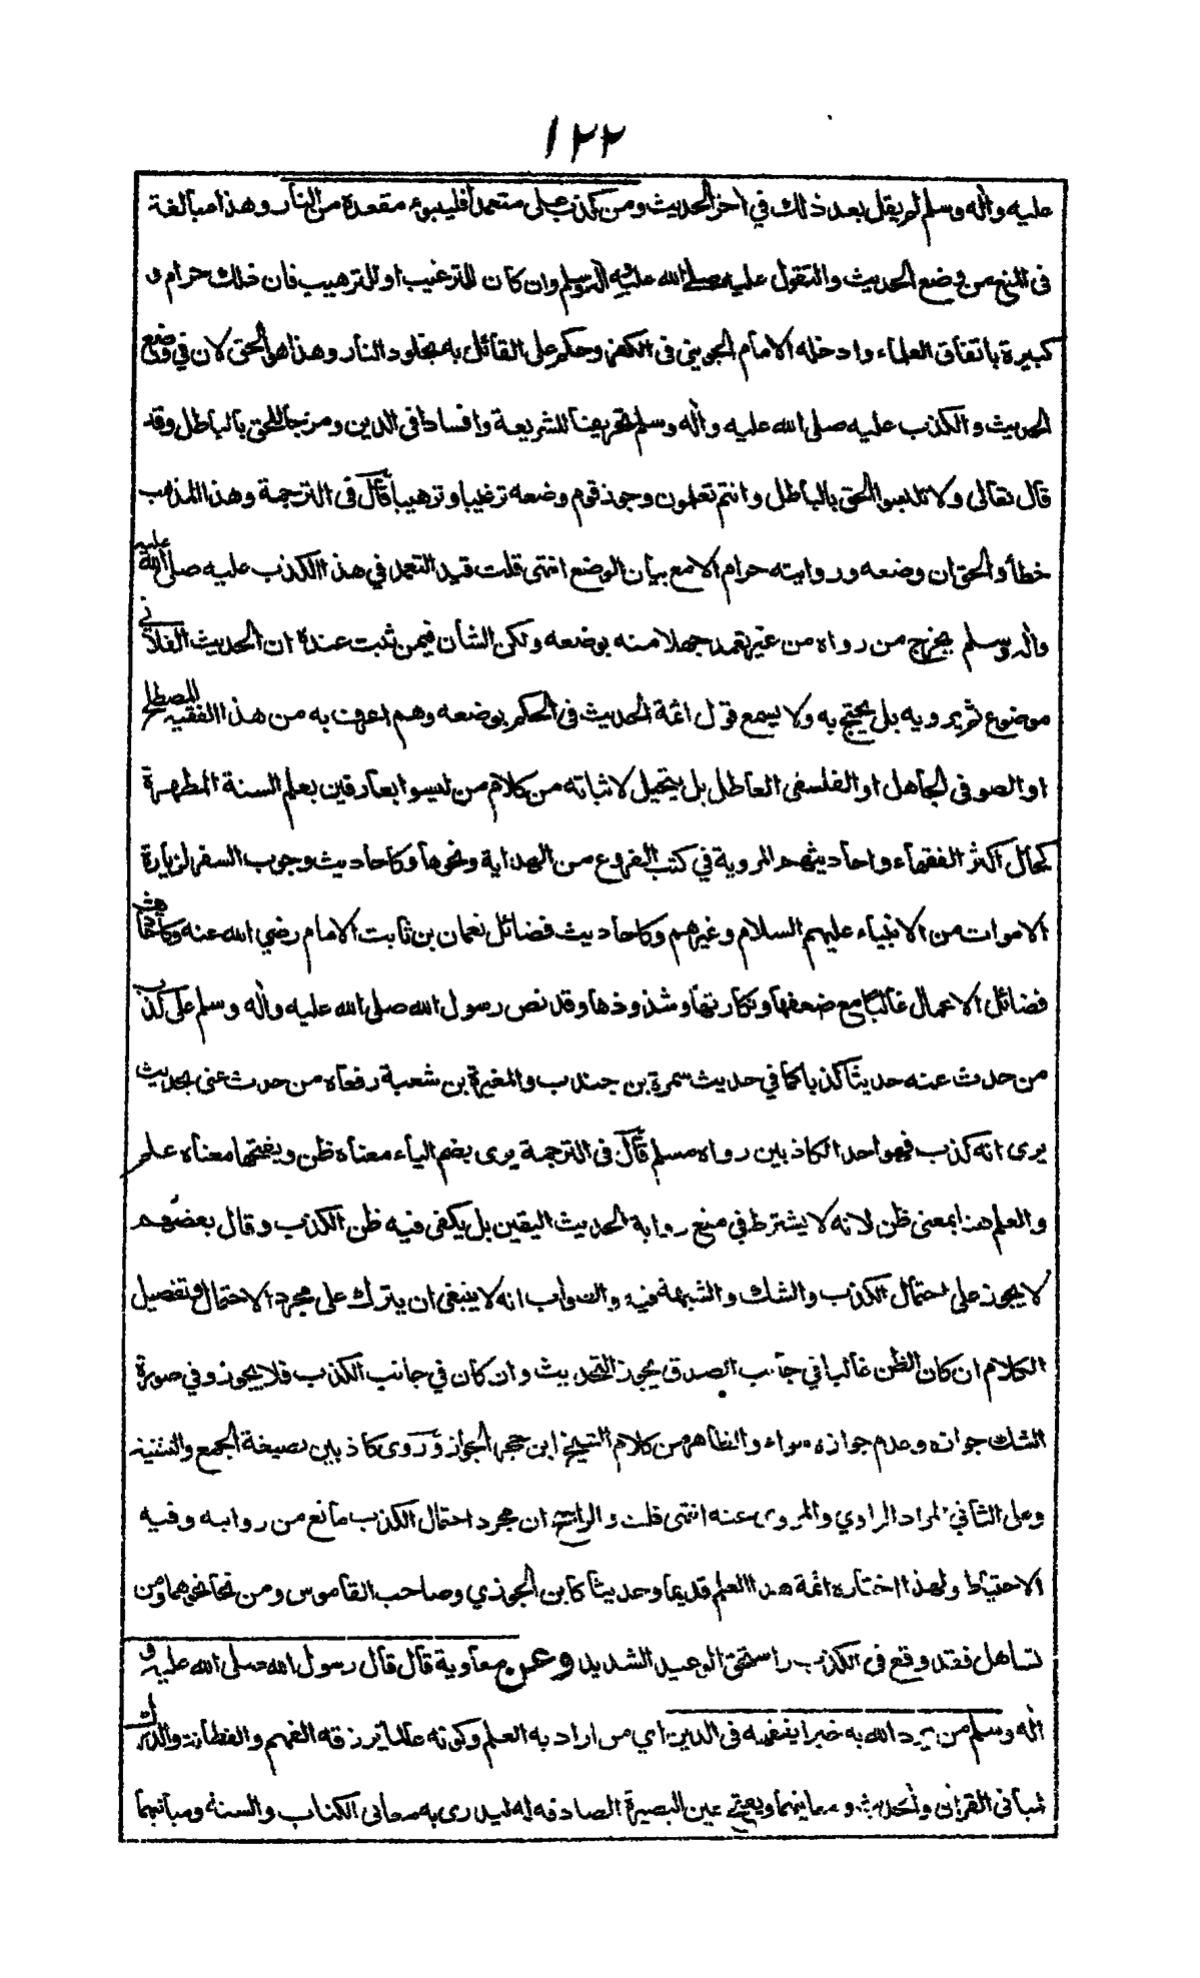 ١٢٢
عليه وأله وسلم لم يقل بعد ذلك في أخر الحديث ومن كذب علي متعمدا فليبوء مقعده من النار وهذا مبالغة
فى المنع من وضع الحديث والتقول عليه صلى الله عليه وأله وسلم وان كان للترغيب او للترهيب فان ذلك حرام و
كبيرة باتفاق العلماء وادخله الامام الجويني فى الكفر وحكم على القائل به بخلود النار وهذا هو الحق لان في وضع
الحديث والكذب عليه صلى الله عليه وأله وسلم تحريفا للشريعة وافسادا فى الدين ومزجا للحق بالباطل وقد
قال تعالى ولا تلبسوا الحق بالباطل وانتم تعلمون وجوز قوم وضعه ترغيبا وترهيبا قال فى الترجمة وهذا المذهب
خطأ والحق ان وضعه وروايته حرام الا مع بيان الوضع انتهى قلت قيد التعمد في هذا الكذب عليه صلى الله عليه
وأله وسلم يخرج من رواه من غير تعمد جهلا منه بوضعه ولكن الشأن فيمن ثبت عنده ان الحديث الفلاني
موضوع ثم يرويه بل يحتج به ولا يسمع قول ائمة الحديث فى الحكم بوضعه وهم اعرف به من هذا الفقيه المصطلح
او الصوفى الجاهل او الفلسفى العاطل بل يتحيل لاثباته من كلام من ليسوا بعارفين بعلم السنة المطهرة
كحال اكثر الفقهاء واحاديثهم المروية في كتب الفروع من الهداية ونحوها وكاحاديث وجوب السفر لزيارة
الاموات من الانبياء عليهم السلام وغيرهم وكاحاديث فضائل نعمان بن ثابت الامام رضي الله عنه وكاحاديث
فضائل الاعمال غالبا مع ضعفها ونكارتها وشذوذها وقد نص رسول الله صلى الله عليه وأله وسلم على كذب
من حدث عنه حديثا كذبا كما في حديث سمرة بن جندب والمغيرة بن شعبة رفعاه من حدث عنى بحديث
يرى انه كذب فهو احد الكاذبين رواه مسلم قال فى الترجمة يرى بضم الياء معناه ظن وبفتحها معناه علم
والعلم هنا بمعنى ظن لانه لا يشترط في منع رواية الحديث اليقين بل يكفى فيه ظن الكذب وقال بعضهم
لا يجوز على احتمال الكذب والشك والشبهة فيه والصواب انه لا ينبغى ان يترك على مجرد الاحتمال وتفصيل
الكلام ان كان الظن غالبا في جانب الصدق يجوز التحديث وان كان في جانب الكذب فلا يجوز وفي صورة
الشك جوازه وعدم جوازه سواء والظاهر من كلام الشيخ ابن حجر الجواز وروى كاذبين بصيغة الجمع والتثنية
وعلى الثاني المراد الراوي والمروى عنه انتهى قلت والراجح ان مجرد احتمال الكذب مانع من روايه وفيه
الاحتياط ولهذا اختاره ائمة هذا العلم قديما وحديثا كابن الجوزي وصاحب القاموس ومن نحا نحوهما ومن
تساهل فقد وقع فى الكذب واستحق الوعيد الشديد وعن معاوية قال قال رسول الله صلى الله عليه و
أله وسلم من يرد الله به خيرا يفقهه فى الدين اي من اراد به العلم وكونه عالما يرزقه الفهم والفطانة والادراك
لمبانى القران والحديث ومعانيهما ويفتح عين البصيرة الصادقه له ليدرى به معانى الكتاب والسنه ومبانيهما